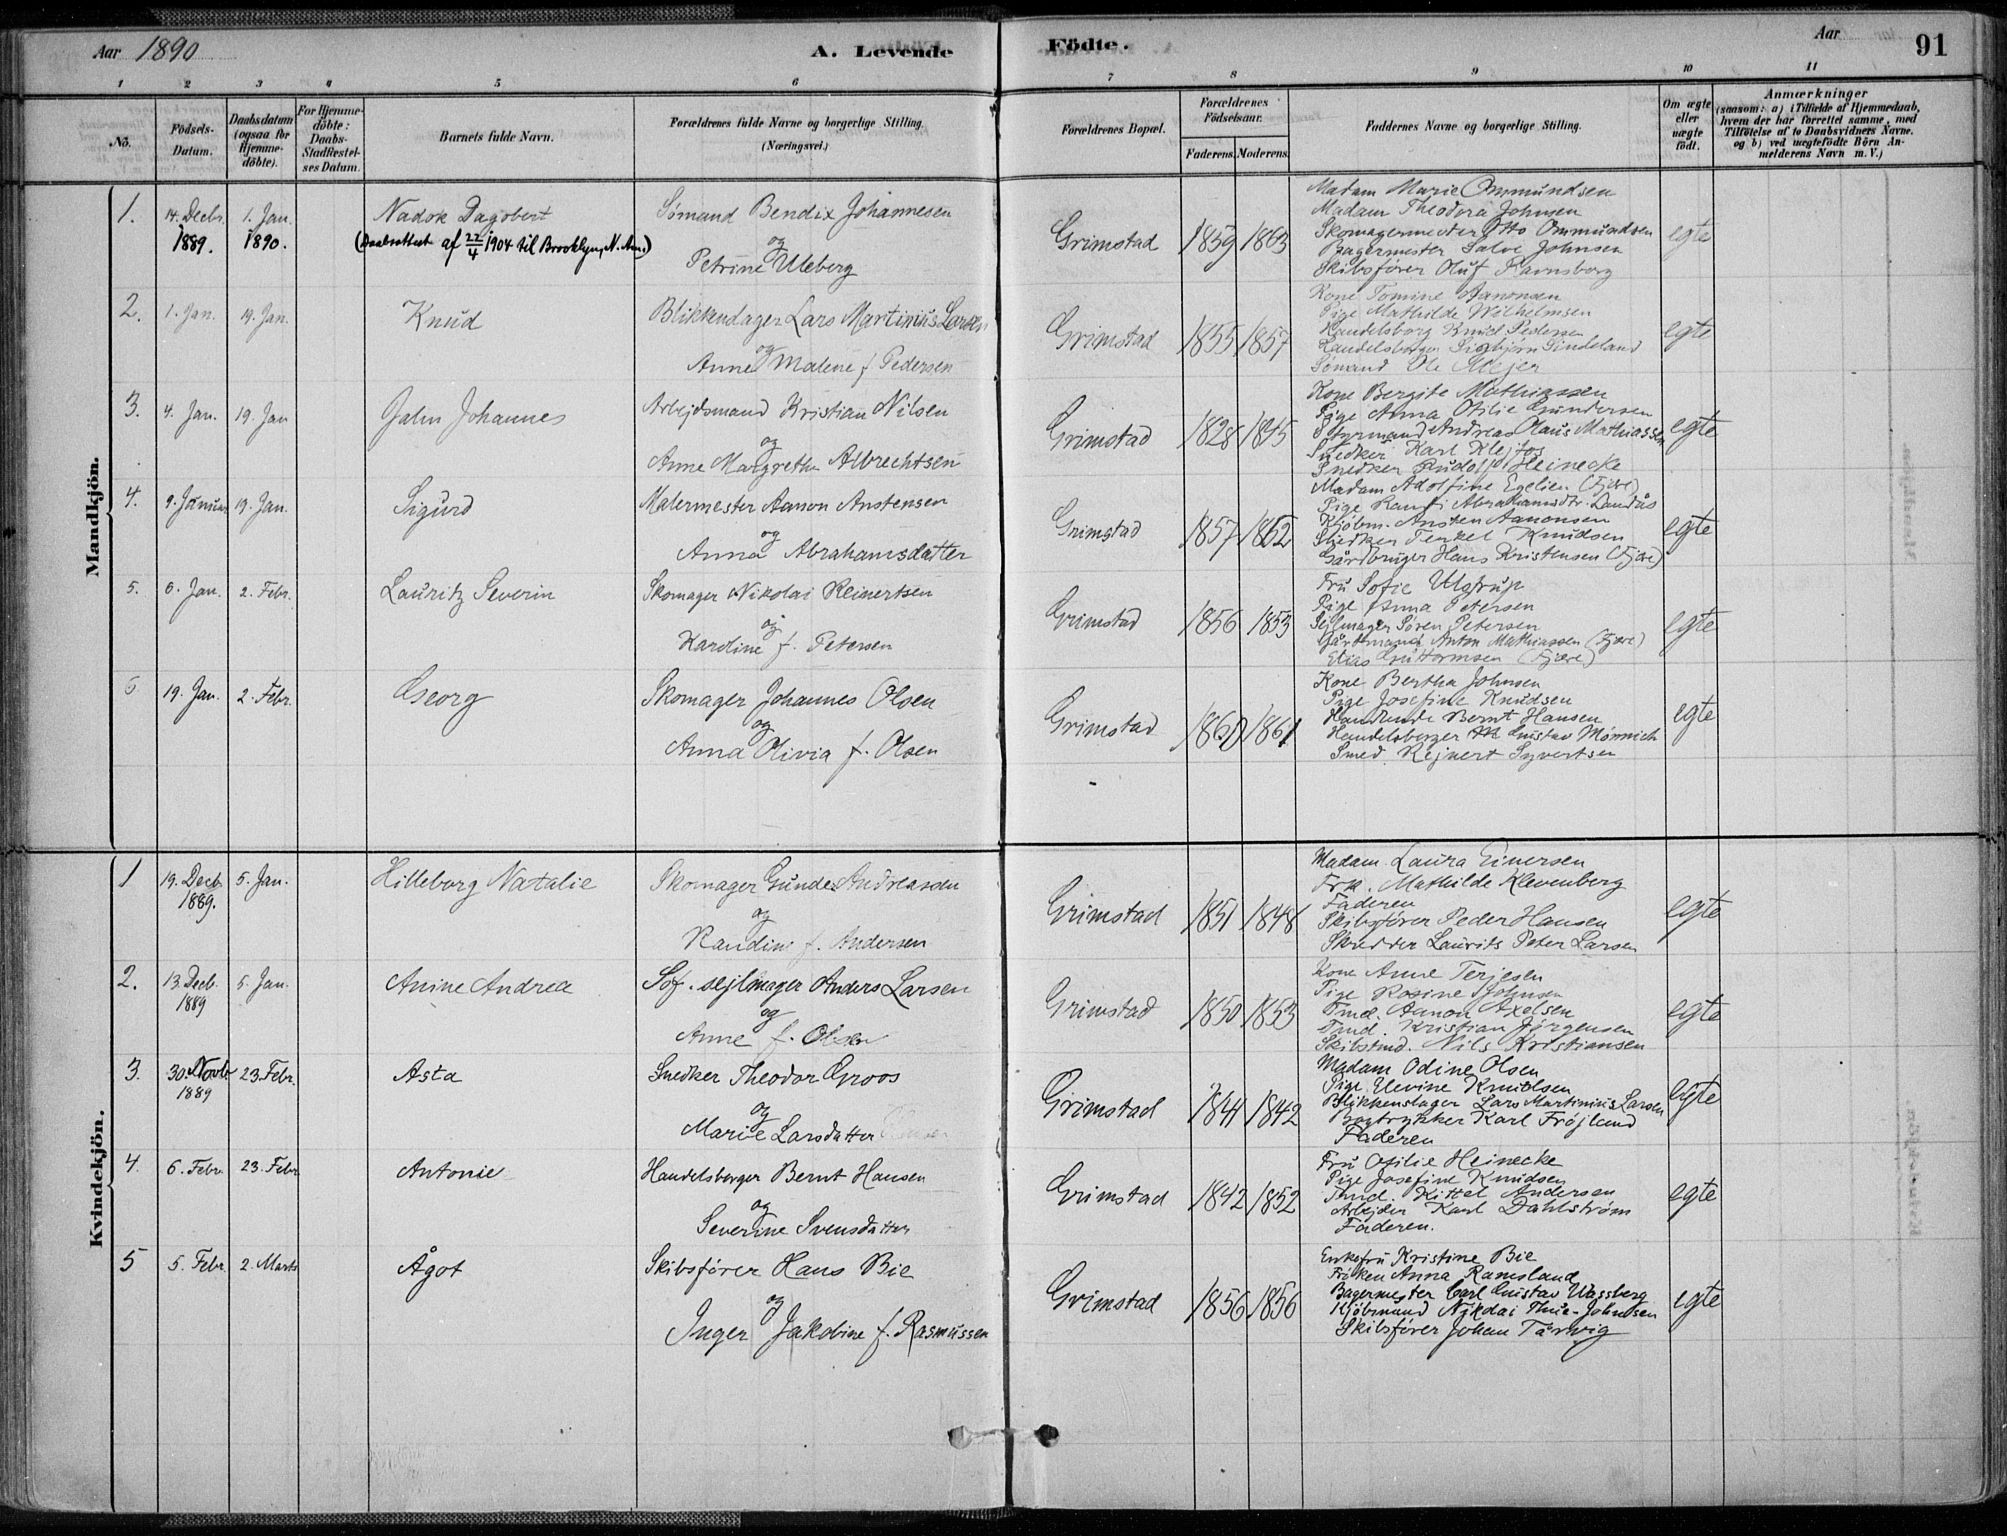 Aar 1890
A. Levende
Födte.
Aar
91
1 2 3 4 5 6 7 8 9 10 11
Nö.
Födsels-Datum.
Daabsdatum (ogsaa for Hjemme-döbte).
For Hjemme-döbte: Daabs-Stadfæstel-ses Datum.
Barnets fulde Navn.
Forældrenes fulde Navne og borgerlige Stilling.
(Næringsvei.)
Forældrenes Bopæl.
Forældrenes Födselsaar.
Faderens. Moderens.
Faddernes Navne og borgerlige Stilling.
Om ægte eller uægte födt.
Anmærkninger
(saasom: a) i Tilfælde af Hjemmedaab, hvem der har forrettet samme, med Tilföielse af to Daabsvidners Navne. og b) ved uægtefödte Börn An-melderens Navn m. V.)
Mandkjön.
1. 14. Decbr. 1889. 1. Jan. 1890. Nadok Dagobert
(Daabsattest af 22/4 1904 til Brooklyn, N. Am.)
Sømand Bendix Johannesen
og
Petrine Uleberg
Grimstad 1859 1863
Madam Marie Ommundsen
Madam Theodora Johnsen
Skomagermester Otto Ommundsen
Bagermester Salve Johnsen
Skibsfører Oluf Ravnsborg
egte
2. 1. Jan. 19. Jan. Knud
Blikkenslager Lars Martinius Larsen
og
Anne Malene f. Pedersen
Grimstad 1855 1857
Kone Tomine Aanonsen
Pige Mathilde Wilhelmsen
Handelsborg Knud Pedersen
Handelsborger Sigbjørn Sindeland
Sømand Ole Mejer
egte
3. 4. Jan. 19. Jan Johannes
Arbejdsmand Kristian Nilsen
og
Anne Margrethe Albrechtsen
Grimstad 1828 1845
Kone Bergite Mathiassen
Pige Anna Otilie Gundersen
Styrmand Andreas Olaus Mathiassen
Snedker Karl Klejfos
Snedker Rudolf Heinecke
egte
4. 9. Januar 19. Jan. Sigurd
Malermester Aanon Anstensen
og
Anna Abrahamsdatter
Grimstad 1857 1862
Madam Adolfine Egelien (Fjære)
Pige Abrahamsdtr. Landus
Kjøbm. Ansten Aanonsen
Snedker Terkel Knudsen
Gårdbruger Hans Kristensen (Fjære)
egte
5. 6. Jan. 2. Febr. Lauritz Severin
Skomager Nikolai Reinertsen
og
Karoline f. Petersen
Grimstad 1856 1853
Fru Sofie Ulstrup
Pige Anna Petersen
Sejlmager Søren Petersen
Gårdmand Anton Mathiassen (Fjære)
Elias Guttormsen (Fjære)
egte
6 19. Jan. 2. Febr. Georg
Skomager Johannes Olsen
og
Anna Olivia f. Olsen
Grimstad 1860 1861
Kone Bertha Johnsen
Pige Josefine Knudsen
Handlende Bernt Hansen
Handelsborger Gustav Mønnich
Smed Rejnert Syvertsen
egte
Kvindekjön.
1 19. Decb. 1889. 5. Jan. Hilleborg Natalie
Skomager Gunder Andreassen
og
Randine f. Andersen
Grimstad 1851 1848
Madam Laura Einersen
Frk. Mathilde Klevenberg
Faderen
Skibsfører Peder Hansen
Skrædder Laurits Peter Larsen
egte
2. 13. Decb. 1889 5. Jan. Anine Andrea
Søf. sejlmager Anders Larsen
og
Anne f. Olsen
Grimstad 1850 1853
Kone Anne Terjesen
Pige Rosine Johnsen
Tmd. Aanon Axelsen
Tmd. Kristian Jørgensen
Skibstmd. Nils Kristiansen
egte
3. 30. Novbr 1889 23. Febr. Asta
Snedker Theodor Groos
og
Marie Larsdatter
Grimstad 1841 1842
Madam Odine Olsen
Pige Elevine Knudsen
Blikkenslager Lars Martinius Larsen
Bogtrykker Karl Frøjland
Faderen
egte
4. 6. Febr. 23. Febr Antonie
Handelsborger Bernt Hansen
og
Severine Svensdatter
Grimstad 1842 1852
Fru Otilie Heinecke
Pige Josefine Knudsen
Tmd. Kittel Andersen
Arbejder Karl Dahlstrøm
Faderen.
egte
5 5. Febr. 2. Marts Ågot
Skibsfører Hans Bie
og
Inger Jakobine f. Rasmussen
Grimstad 1856 1856
Enkefru Kristine Bie
Frøken Anna Ramsland
Bagermester Carl Gustav Wassberg
Kjøbmand Nikolai Thue-Johnsen
Skibsfører Johan Tarwig
egte